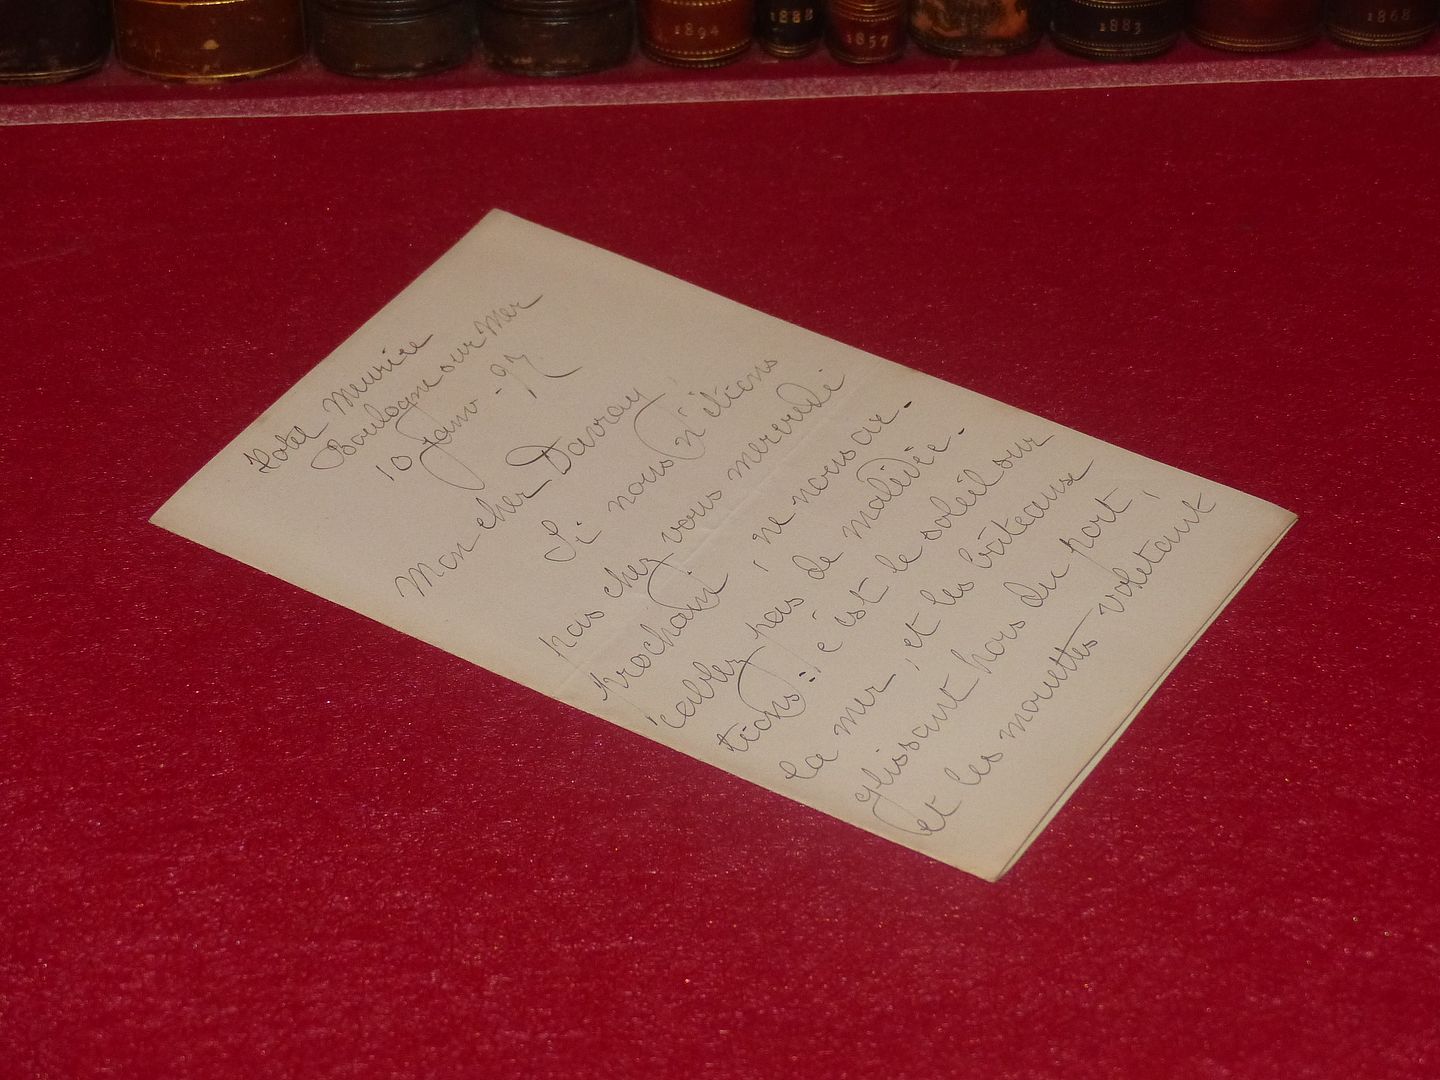 1894
1888
1857
1883
1868
Hotel Meurice
Boulogne sur Mer
10 Janv - 97
Mon cher Davray,
Si nous n'étions
pas chez vous mercredi
prochain, ne nous ac-
cablez pas de malédic-
tions: c'est le soleil sur
la mer, et les bâteaux
glissant hors du port,
et les mouettes voletant